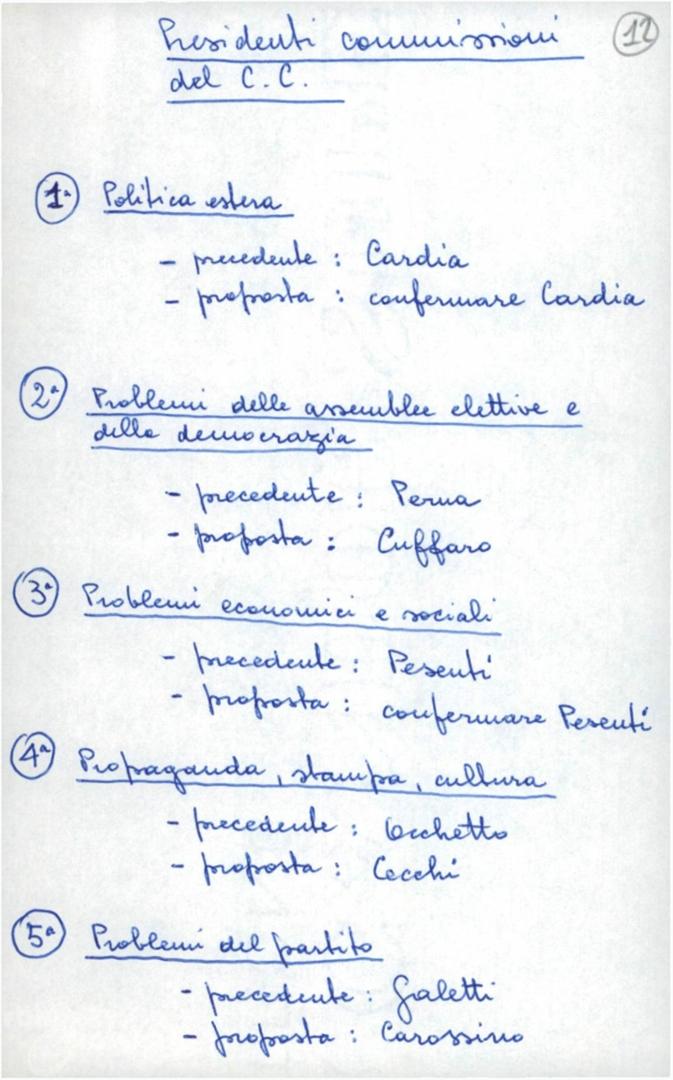 Presidenti commissioni
12
del C.C.
1a Politica estera
- precedente : Cardia
- proposta : confermare Cardia
2a Problemi delle assemblee elettive e
della democrazia
- precedente : Perna
- proposta : Cuffaro
3a Problemi economici e sociali
- precedente : Pesenti
- proposta : confermare Pesenti
4a Propaganda, stampa, cultura
- precedente : Occhetto
- proposta : Cecchi
5a Problemi del partito
- precedente : Galetti
- proposta : Carossino